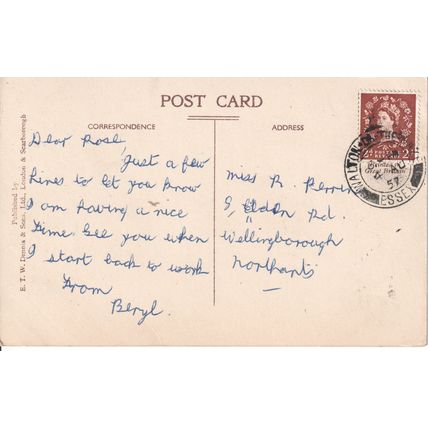 POST CARD
CORRESPONDENCE
Dear Rose,
Just a few
lines to let you know
I am having a nice
time. See you when
I start back to work
From
Beryl.
ADDRESS
Miss R. Perrin
Rd.
Wellingborough
Northants
Published by
E. T. W. Dennis & Sons, Ltd., London & Scarborough
WALTON-ON-THE-
ESSEX
57
Great Britain